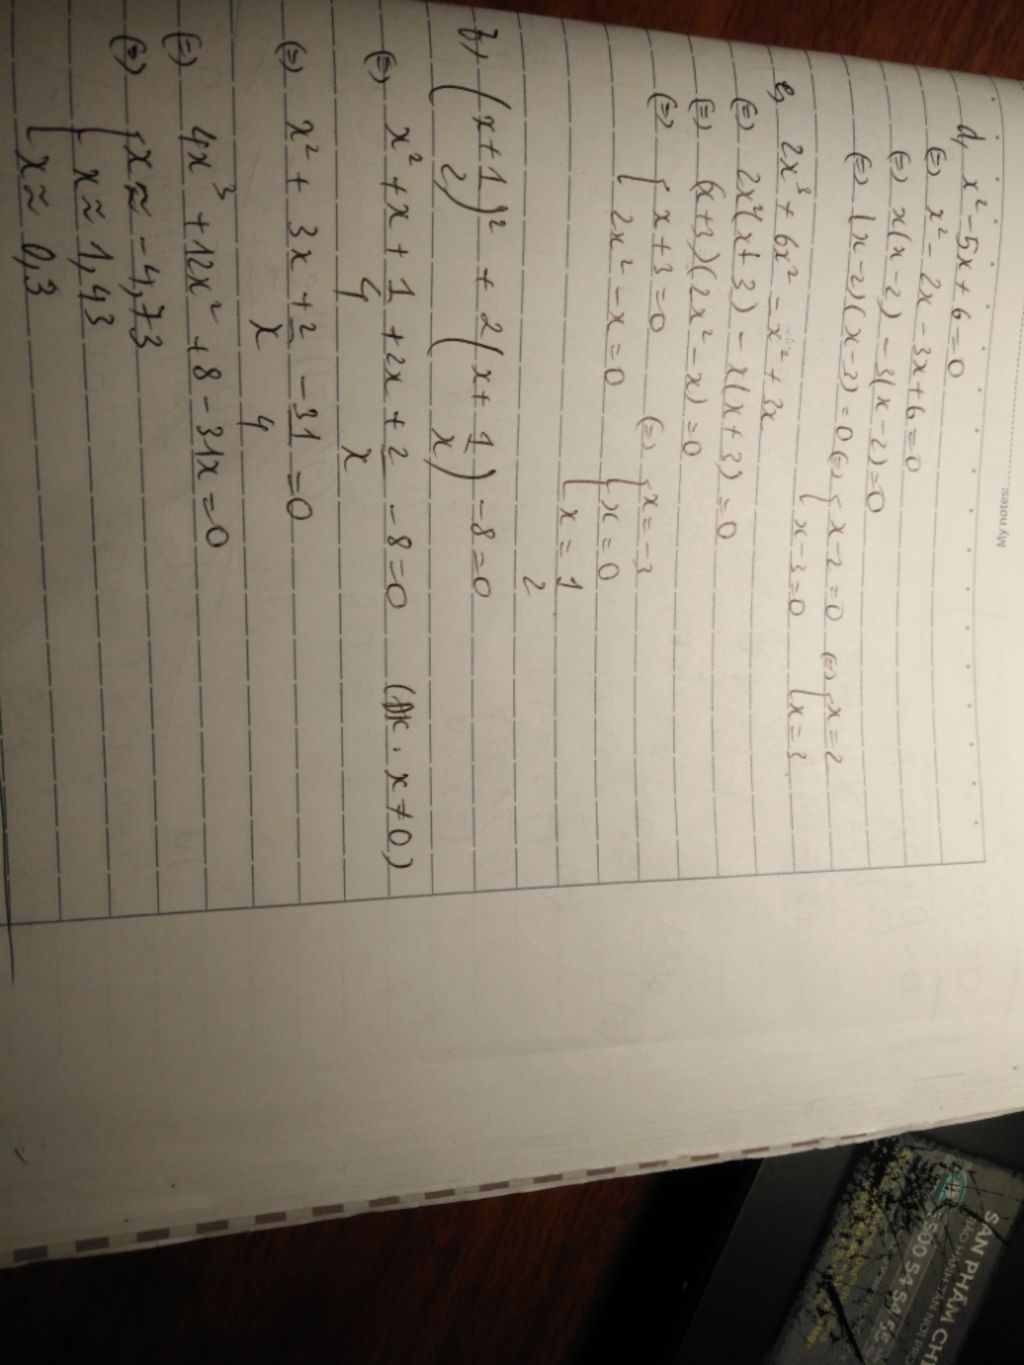 My notes:
d, x² - 5x + 6 = 0
(=) x² - 2x - 3x + 6 = 0
(=) x(x - 2) - 3(x - 2) = 0
(=) (x - 2)(x - 3) = 0 (=) [ x - 2 = 0 (=) [ x = 2
[ x - 3 = 0 [ x = 3
e, 2x³ + 6x² - x² + 3x
(=) 2x²(x + 3) - x(x + 3) = 0
(=) (x + 3)(2x² - x) = 0
(=) [ x + 3 = 0 (=) [ x = -3
[ 2x² - x = 0 [ x = 0
[ x = 1/2
b) (x + 1/2)² + 2(x + 1/x) - 8 = 0
(=) x² + x + 1/4 + 2x + 2/x - 8 = 0 (ĐK. x ≠ 0)
(=) x² + 3x + 2/x - 31/4 = 0
(=) 4x³ + 12x² + 8 - 31x = 0
(=) [ x ≈ -4,73
[ x ≈ 1,43
[ x ≈ 0,3
SẢN PHẨM CH